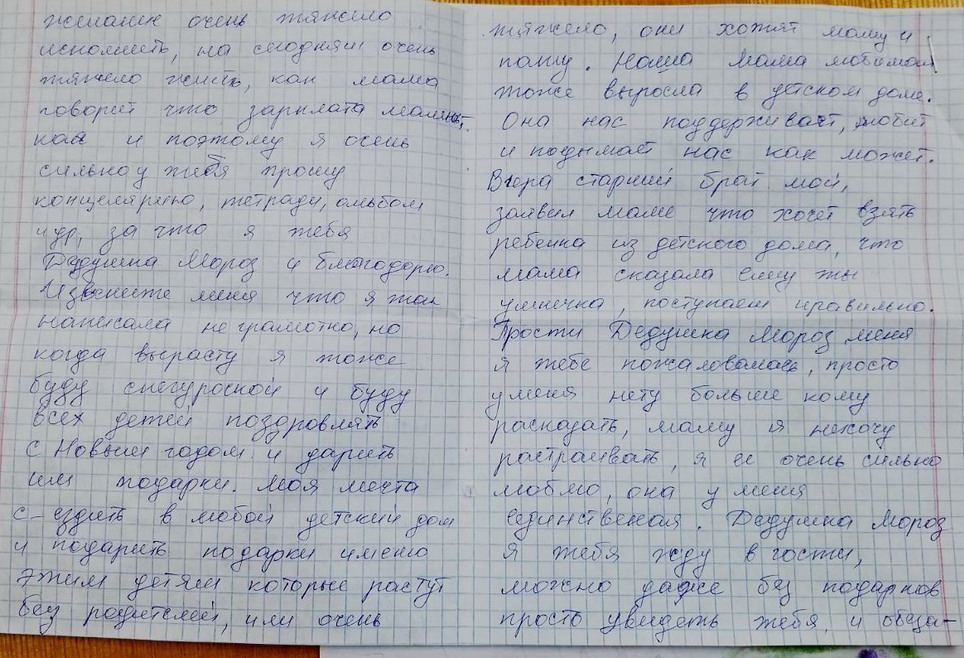 желание очень тяжело
исполнить, на сегодняш очень
тяжело жить, как мама
говорит что зарплата малень,
кая и поэтому я очень
сильно у тебя прошу
концелярию, тетради, альбом
и др, за что я тебя
Дедушка Мороз и благодорю.
Извените меня что я так
написала не грамотно, но
когда вырасту я тоже
буду снегурочкой и буду
всех детей поздровлять
С Новым годом и дарить
им подарки. Моя мечта
с-ездить в любой детский дом
и подарить подарки имено
этим детям которые растут
без родителей, или очень
тяжело, они хотят маму и
папу. Наша мама любимая
тоже выросла в даском доме.
Она нас поддерживает, любит
и подымает нас как может.
Вчера старший брат мой,
заявил маме что хочет взять
ребенка из детского дома, что
мама сказала ему ты
умничка, поступаеш правильно.
Прости Дедушка Мороз меня
я тебе пожаловалась, просто
у меня нету больше кому
расказать, маму я нехочу
растраивать, я ее очень сильно
люблю, она у меня
единственая. Дедушка Мороз
я тебя жду в гости,
можно даже без подарков
просто увидеть тебя, и обеща-